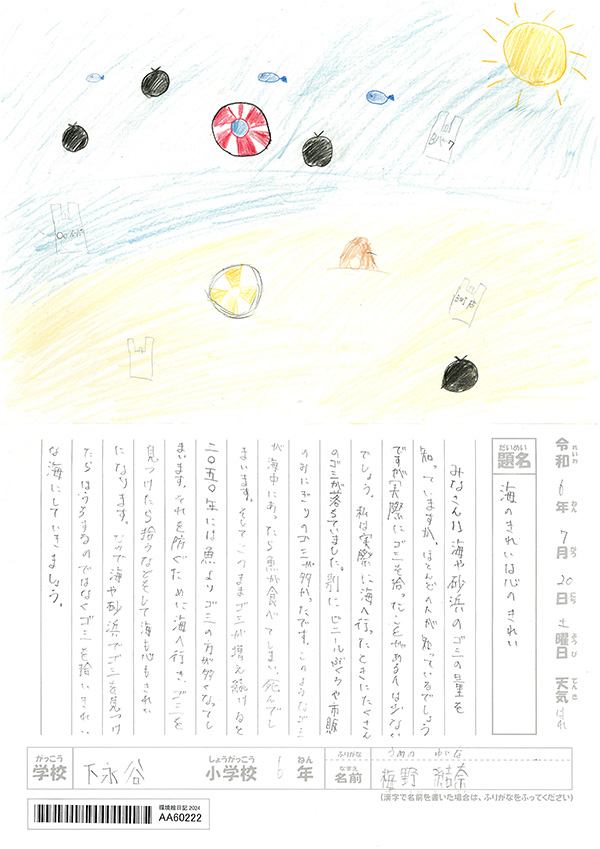 令和6年7月20日土曜日 天気 はれ
題名 海のきれいは心のきれい
みなさんは海や砂浜のゴミの量を
知っていますか。ほとんどの人が知っているでしょう
ですが実際にゴミを拾ったことがある人は少ない
でしょう。私は実際に海へ行ったときにたくさん
のゴミが落ちていました。別にビニールぶくろや市販
のおにぎりのゴミが多かったです。このようなゴミ
が海中にあったら魚が食べてしまい死んでし
まいます。そしてこのままゴミが増え続けると
二〇五〇年には魚よりゴミの方が多くなってし
まいます。それを防ぐために海へ行き、ゴミを
見つけたら拾うなどをして海も心もきれい
になります。なので海や砂浜でゴミを見つけ
たらほうちするのではなくゴミを拾いきれい
な海にしていきましょう。
学校 下永谷 小学校 6年
ふりがな うめの ゆな
名前 梅野 結奈
(漢字で名前を書いた場合は、ふりがなをふってください)
環境絵日記 2024
AA60222